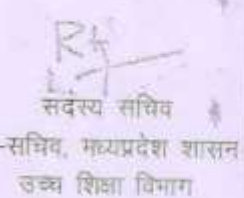 सदस्य सचिव
-सचिव, मध्यप्रदेश शासन
उच्च शिक्षा विभाग